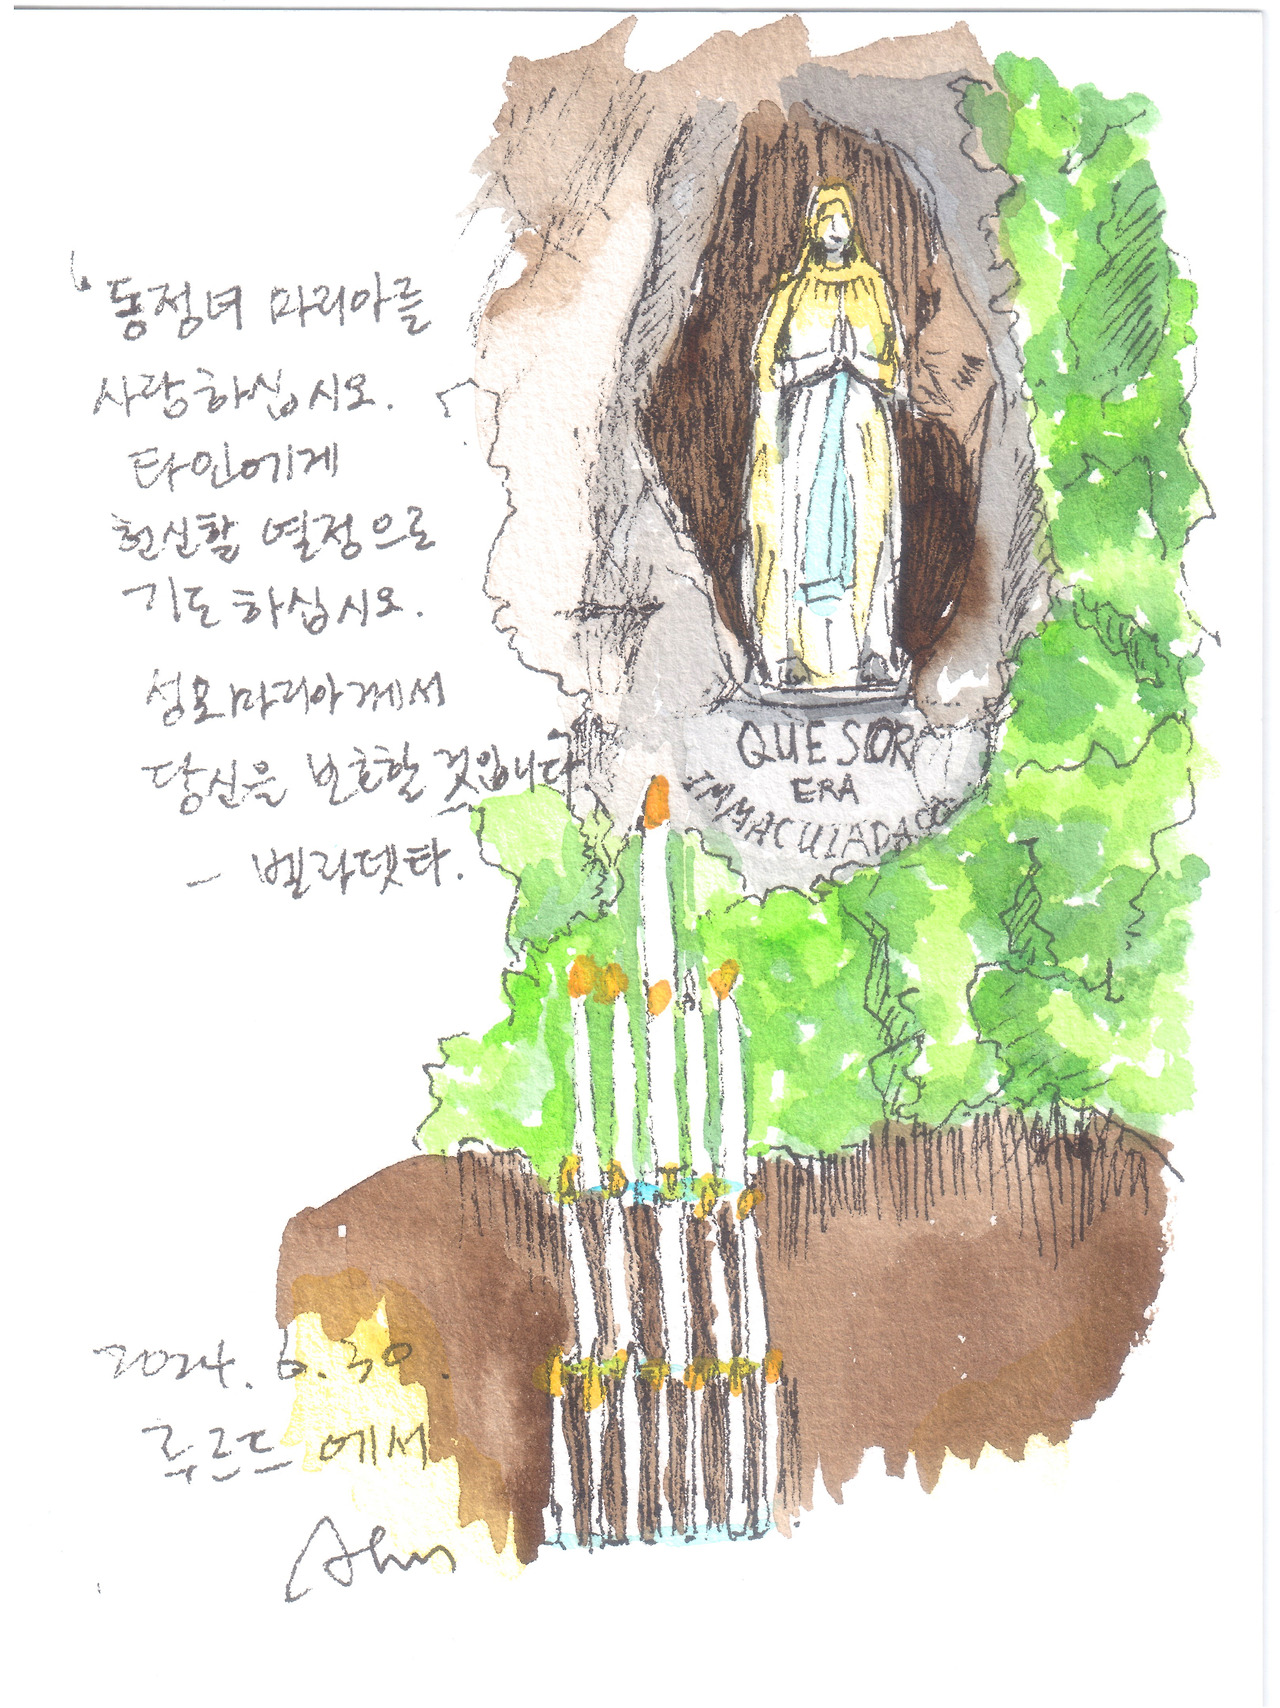 '동정녀 마리아를
사랑하십시오.
타인에게
헌신할 열정으로
기도하십시오.
성모마리아께서
당신을 보호할 것입니다
- 벨라뎃타.
QUE SOR
ERA
IMMACULADA CO
2024. 6. 30.
루르드에서
Ahn